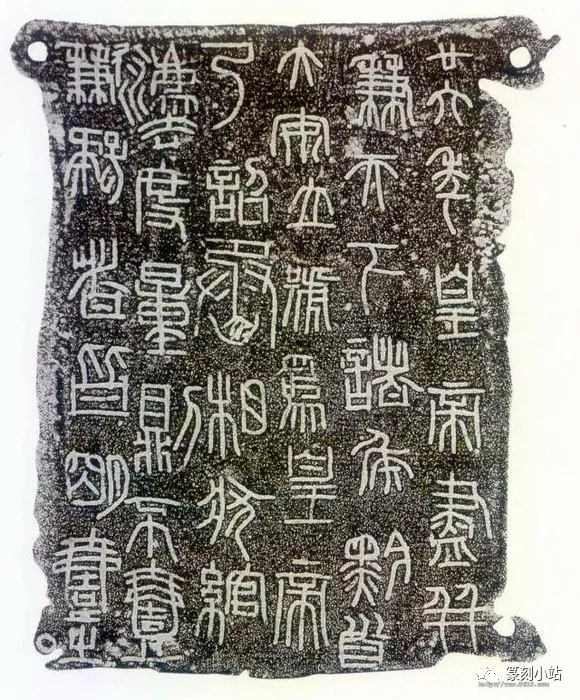 廿六年皇帝盡并
兼天下諸侯黔首
大安立號為皇帝
乃詔丞相狀綰
灋度量則不壹
歉疑者皆明壹之
篆刻小站